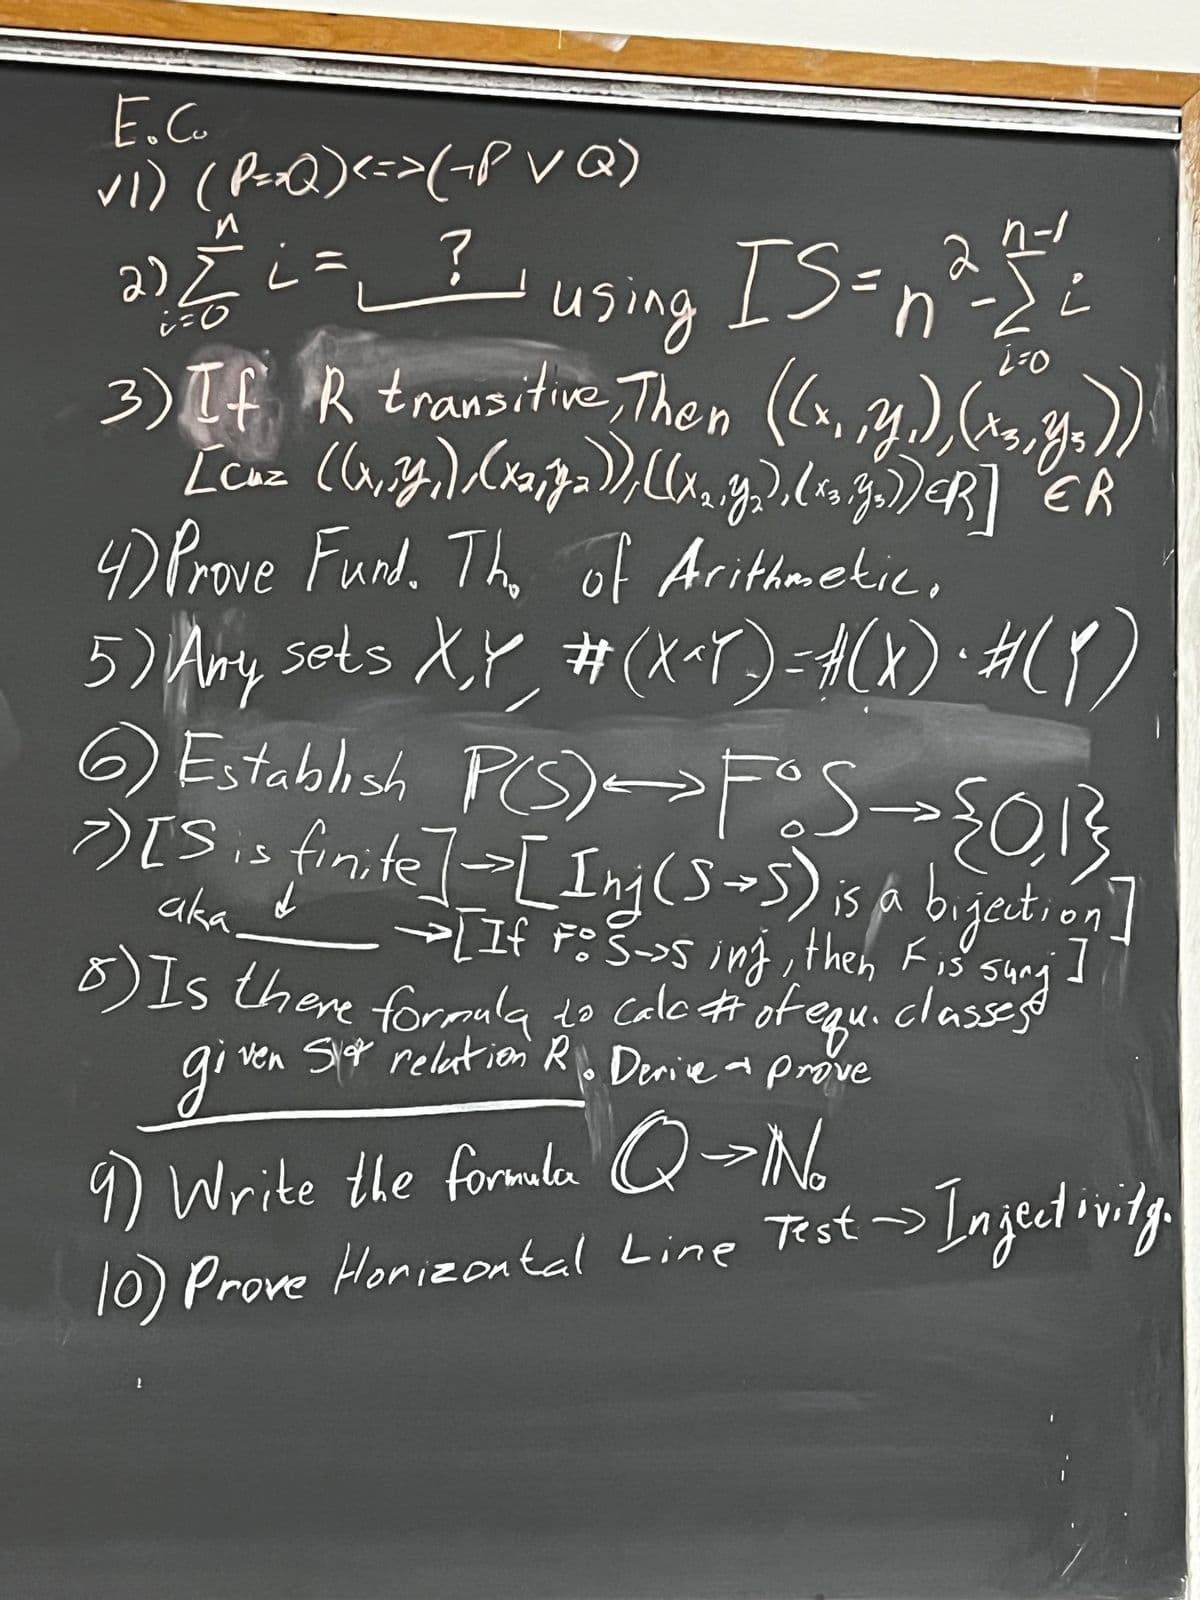 E.C.
√1) (P=>Q)<=>(¬P ∨ Q)
2) n Σ i=0 i = ? using IS = n² - n-1 Σ i=0 i
3) If R transitive, Then ((x₁,y₁),(x₃,y₃))
[cuz ((x₁,y₁),(x₂,y₂)),((x₂,y₂),(x₃,y₃))∈R] ∈R
4) Prove Fund. Th. of Arithmetic.
5) Any sets X,Y, #(X×Y)=#(X)·#(Y)
6) Establish P(S)<->F:S->{0,1}
7) [S is finite]->[Inj(S->S) is a bijection]
aka ->[If F:S->S inj, then F is surj]
8) Is there formula to calc # of equ. classes
given relation R. Derive & prove
9) Write the formula Q->N₀
10) Prove Horizontal Line Test -> Injectivity.